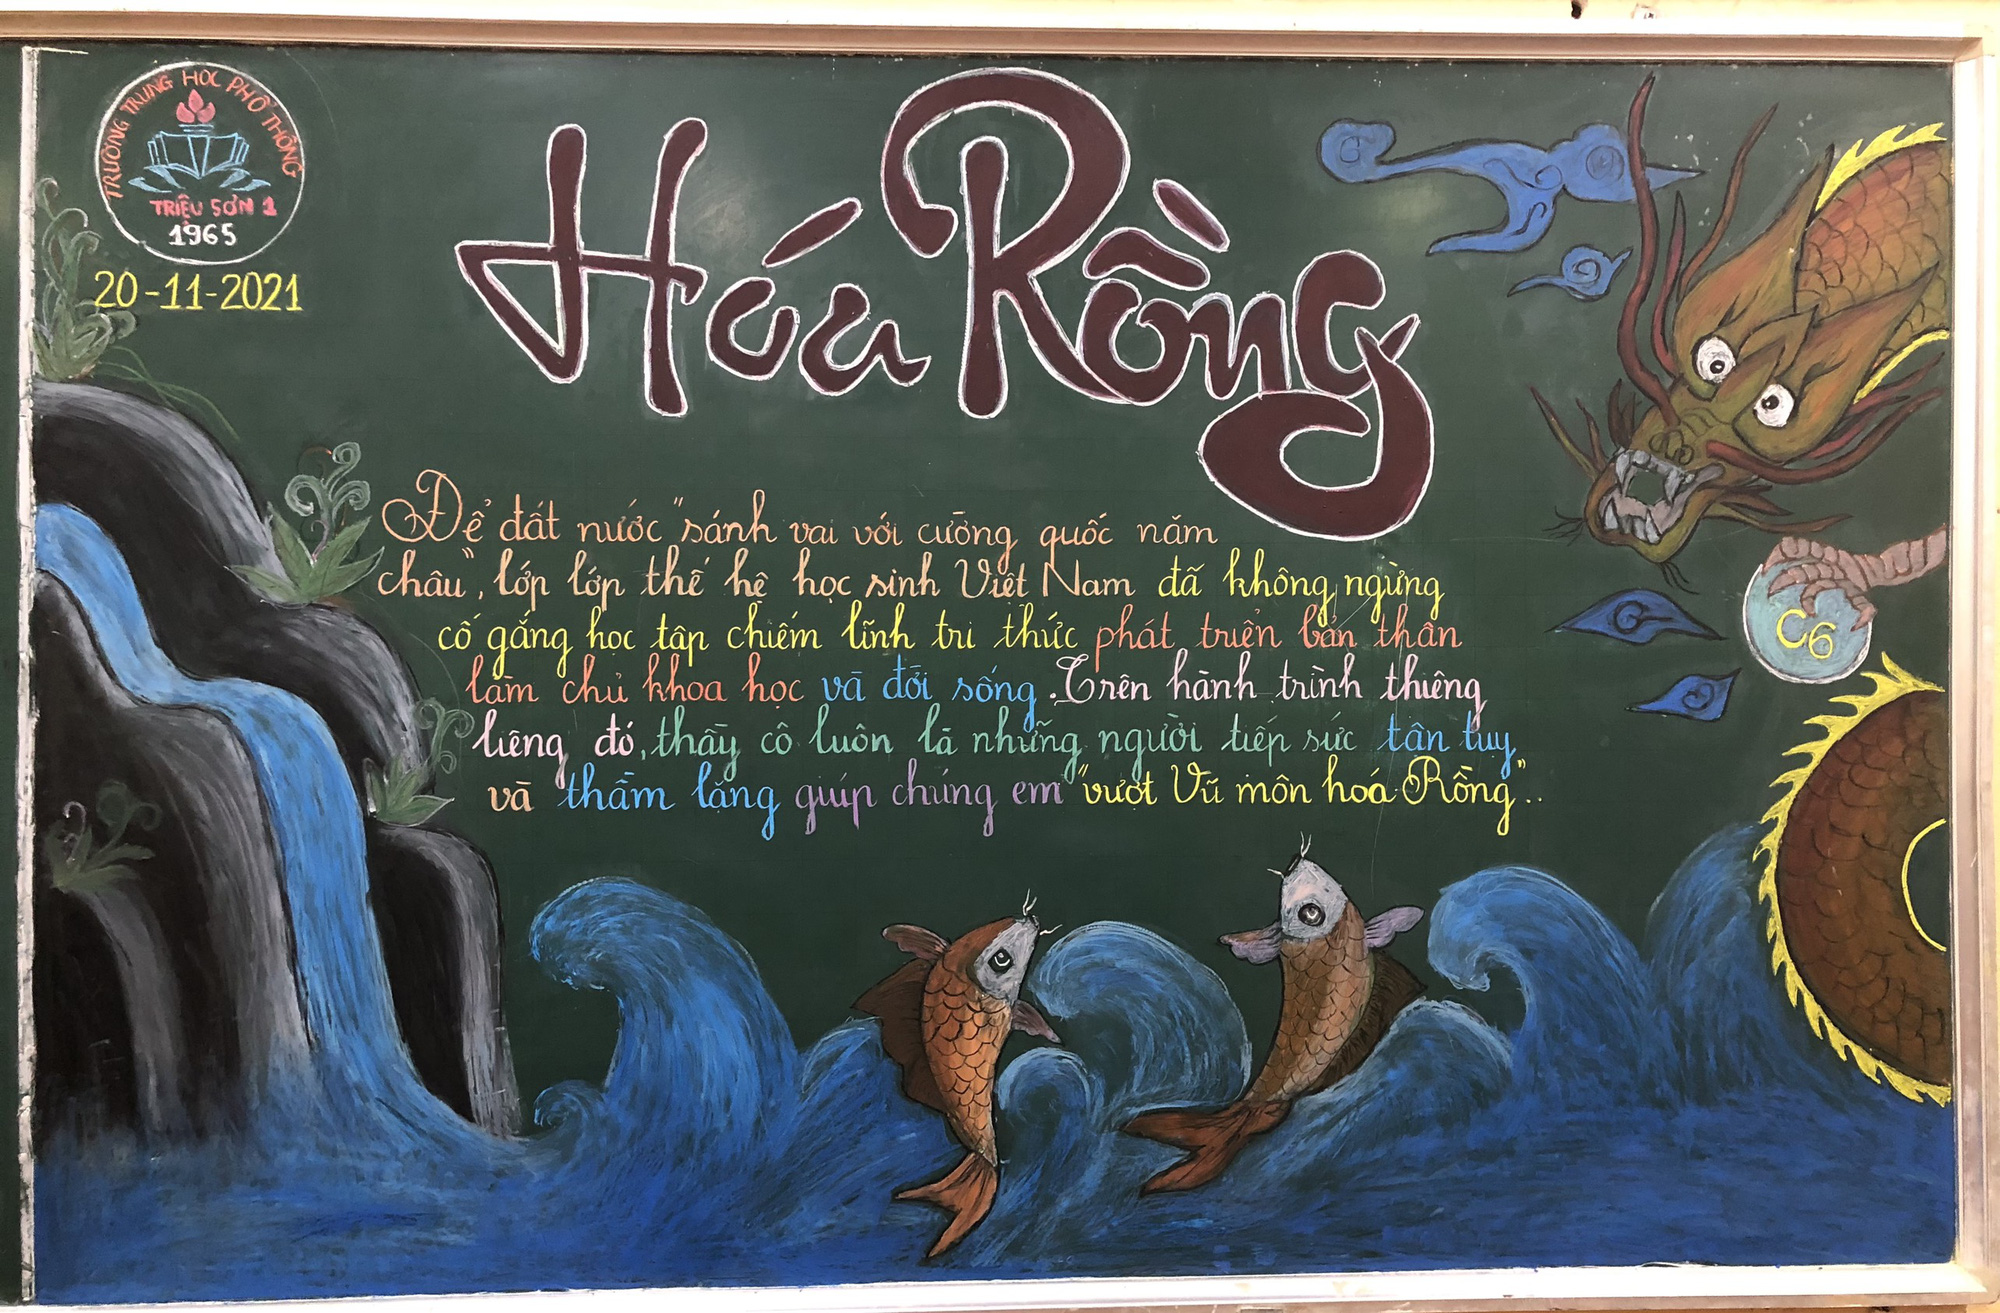 TRƯỜNG TRUNG HỌC PHỔ THÔNG
TRIỆU SƠN 1
1965
20-11-2021
Hóa Rồng
Để đất nước "sánh vai với cường quốc năm
châu", lớp lớp thế hệ học sinh Việt Nam đã không ngừng
cố gắng học tập chiếm lĩnh tri thức phát triển bản thân
làm chủ khoa học và đời sống. Trên hành trình thiêng
liêng đó, thầy cô luôn là những người tiếp sức tận tuỵ
và thầm lặng giúp chúng em "vượt Vũ môn hoá Rồng"..
C6